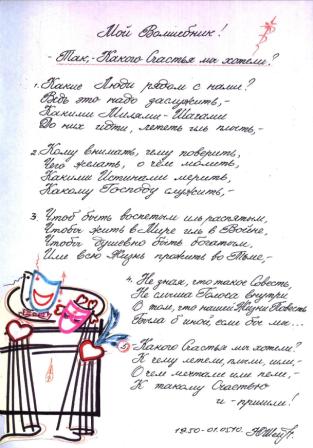 Мой Волшебник!
- Так, - Какого Счастья мы хотели?
1. Какие Люди рядом с нами?
Ведь это надо заслужить, -
Какими Милями - Шагами
До них идти, лететь иль плыть, -
2. Кому внимать, чему поверить,
Чего желать, о чём молить,
Какими Истинами мерить,
Какому Господу служить, -
3. Чтоб быть воспетым иль распятым,
Чтобы жить в Мире иль в Войне,
Чтобы душевно быть богатым,
Или всю Жизнь прожить во Тьме, -
4. Не зная, что такое Совесть,
Не слыша Голоса внутри
О том, что нашей Жизни Повесть
Была б иной, если бы мы...
5. Какого Счастья мы хотели?
К чему летели, плыли, шли, -
О чём мечтали или пели, -
К такому Счастью
и - пришли!
1950-01.05.10.